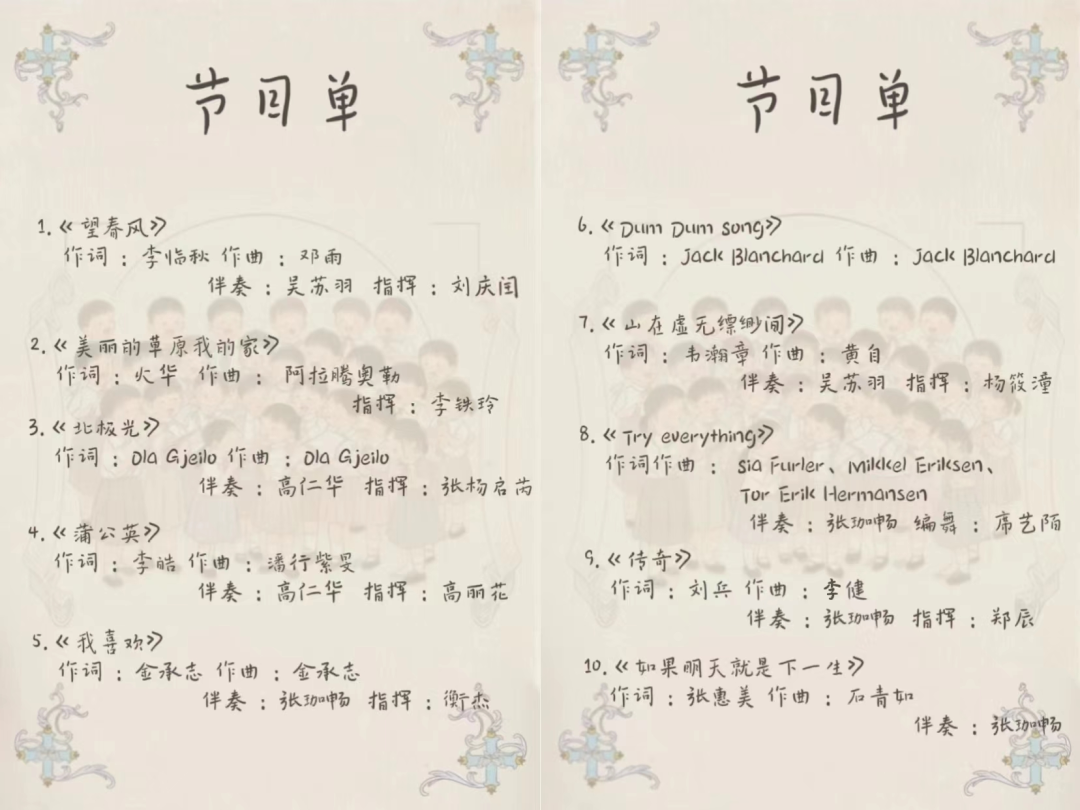 节目单
1.《望春风》
作词：李临秋 作曲：邓雨
伴奏：吴苏羽 指挥：刘庆闰
2.《美丽的草原我的家》
作词：火华 作曲：阿拉腾奥勒
指挥：李铁玲
3.《北极光》
作词：Ola Gjeilo 作曲：Ola Gjeilo
伴奏：高仁华 指挥：张杨启芮
4.《蒲公英》
作词：李皓 作曲：潘行紫旻
伴奏：高仁华 指挥：高丽花
5.《我喜欢》
作词：金承志 作曲：金承志
伴奏：张珈畅 指挥：衡杰
节目单
6.《Dum Dum song》
作词：Jack Blanchard 作曲：Jack Blanchard
7.《山在虚无缥缈间》
作词：韦瀚章 作曲：黄自
伴奏：吴苏羽 指挥：杨筱潼
8.《Try everything》
作词作曲：Sia Furler、Mikkel Eriksen、
Tor Erik Hermansen
伴奏：张珈畅 编舞：席艺陌
9.《传奇》
作词：刘兵 作曲：李健
伴奏：张珈畅 指挥：郑辰
10.《如果明天就是下一生》
作词：张惠美 作曲：石青如
伴奏：张珈畅